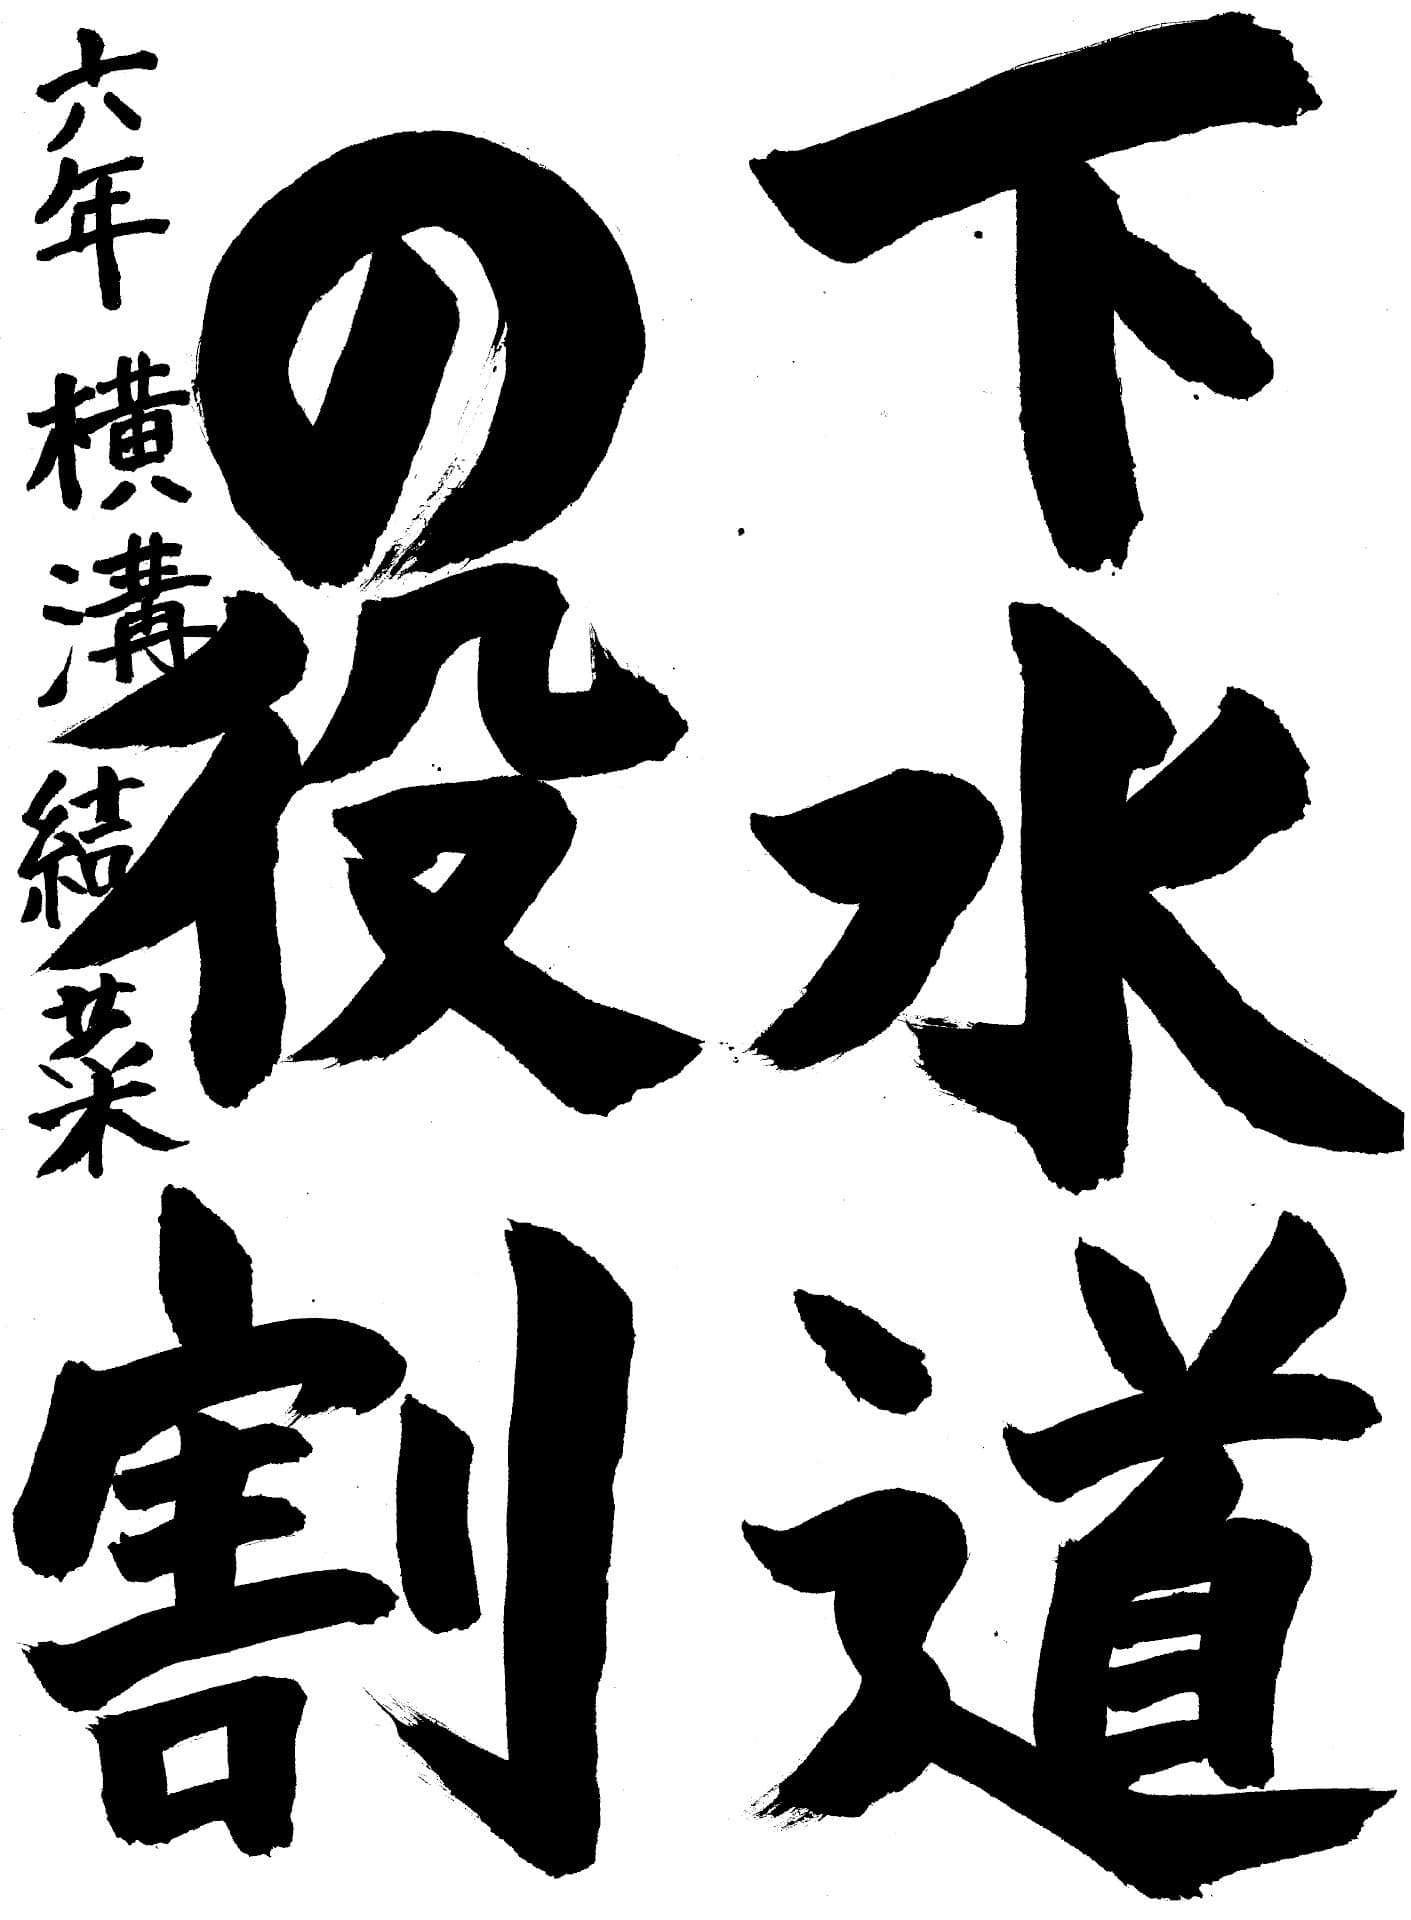 下水道
の役割
六年 横溝結菜